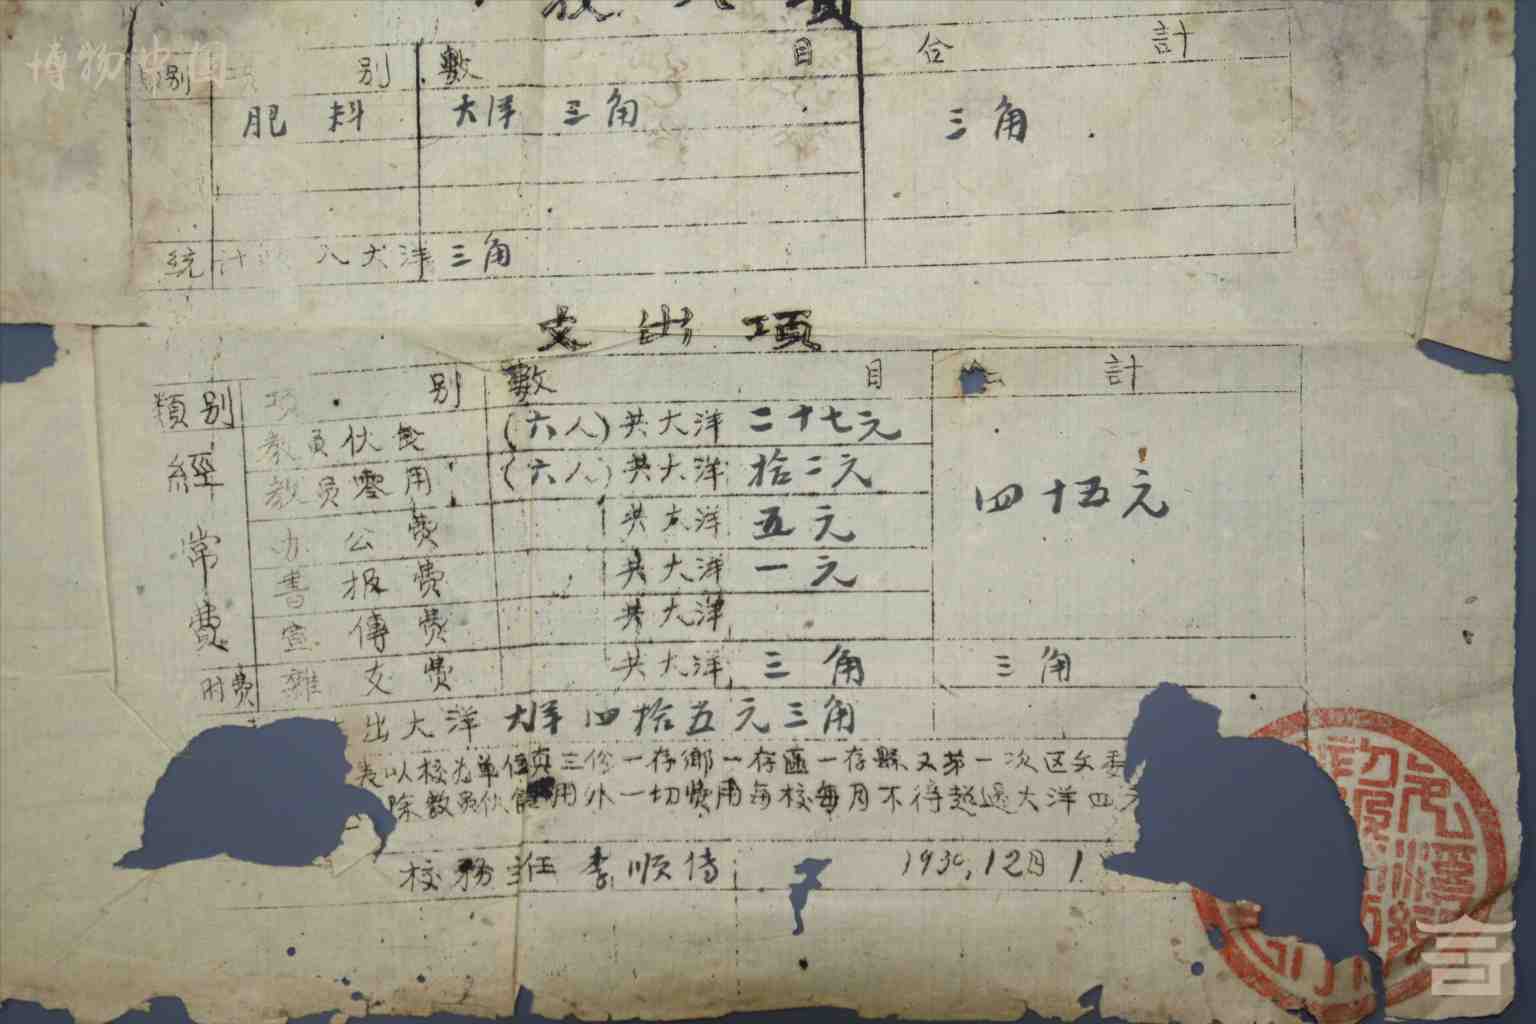 博物中国
收入項
類別 項別 數目 合計
肥料 大洋 三角 三角
統計收入大洋三角
支出項
類別 項別 數目 合計
經常費
教員伙食 (六人) 共大洋 二十七元
教員零用 (六人) 共大洋 拾二元
四十五元
办公費 共大洋 五元
書报費 共大洋 一元
宣傳費 共大洋
附費 雜支費 共大洋 三角 三角
出大洋 大洋 四拾五元三角
表以校为單位填三份一存鄉一存區一存縣又第一次区文委
除教員伙食 用外一切費用每校每月不得超過大洋四元
校務主任 李順傳 1930,12月1